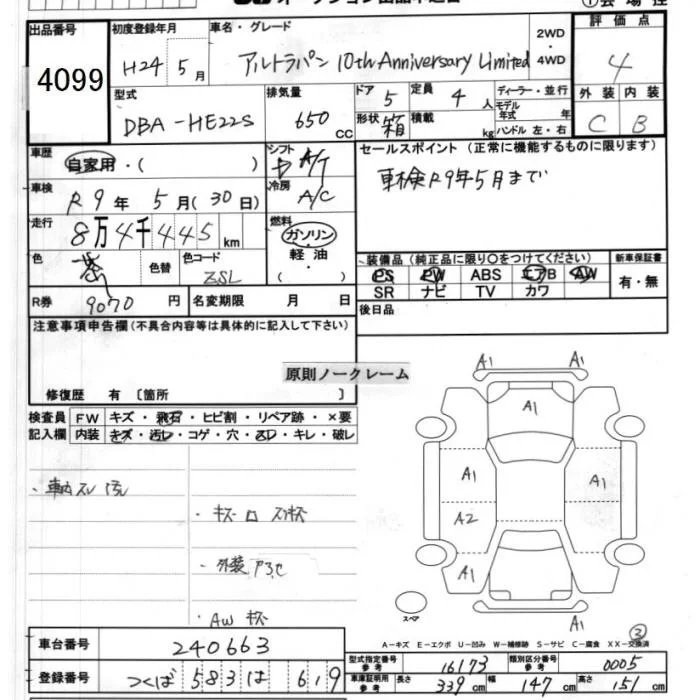 出品番号
4099
初度登録年月
H24 5月
車名・グレード
アルトラパン 10th Anniversary Limited
2WD
4WD
評価点
4
外装 内装
C B
型式
DBA-HE22S
排気量
650 CC
ドア 5
形状 箱
定員 4 人
積載 kg
ディーラー・並行
モデル年式 年
ハンドル 左・右
車歴
自家用・( )
シフト
A/T
冷房
A/C
セールスポイント (正常に機能するものに限ります)
車検R9年5月まで
車検
R9年 5月(30日)
走行
8万4千445km
燃料
ガソリン
軽油
( )
色
紫
色替
色コード
ZSL
装備品 (純正品に限り○をつけてください)
PS PW ABS エアB AW
SR ナビ TV カワ
新車保証書
有・無
R券 9070 円
名変期限 月 日
後日品
注意事項申告欄(不具合内容等は具体的に記入して下さい)
原則ノークレーム
修復歴 有 [箇所 ]
検査員記入欄
FW キズ・飛石・ヒビ割・リペア跡・×要
内装 キズ・汚レ・コゲ・穴・スレ・キレ・破レ
・車内スレ 汚レ
・外装
・AW キズ
A1 A1
A1
A1 A1
A2
A1
A1
スペア
A-キズ E-エクボ U-凹み W-補修跡 S-サビ C-腐食 XX-交換済
車台番号 240663
登録番号 つくば 583 は 619
型式指定番号 参考 16173
類別区分番号 参考 0005
車庫証明用 参考 長さ 339 cm 幅 147 cm 高さ 151 cm